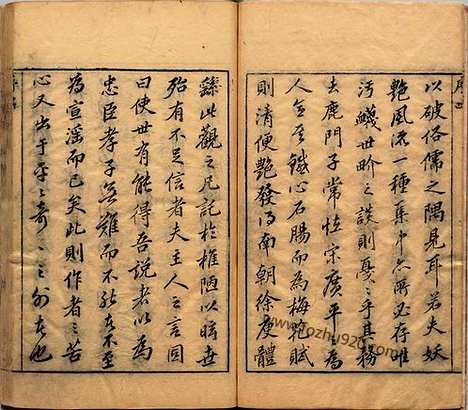 以破俗儒之隅見耳若夫妖
艶風流一種集中亦所必存唯
汚衊世眇之談則戞〻乎其務
去鹿門子常恠宋廣平之為
人意其鐵心石腸而為梅花賦
則清便艶發得南朝徐庾體
繇此觀之凡託於椎陋以眩世
殆有不足信者夫主人之言固
曰使世有能得吾說者以為
忠臣孝子無難而不能者不至
為宣淫而已矣此則作者之苦
心又出于平平奇奇之外者也